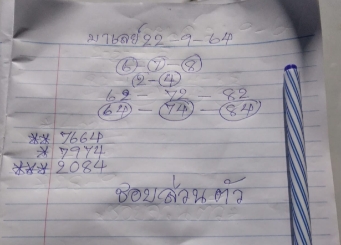 มาเลย์ 22-9-64
6-7-8
2-4
62 72-82
64-74-84
** 7664
* 7974
*** 2084
ชอบส่วนตัว